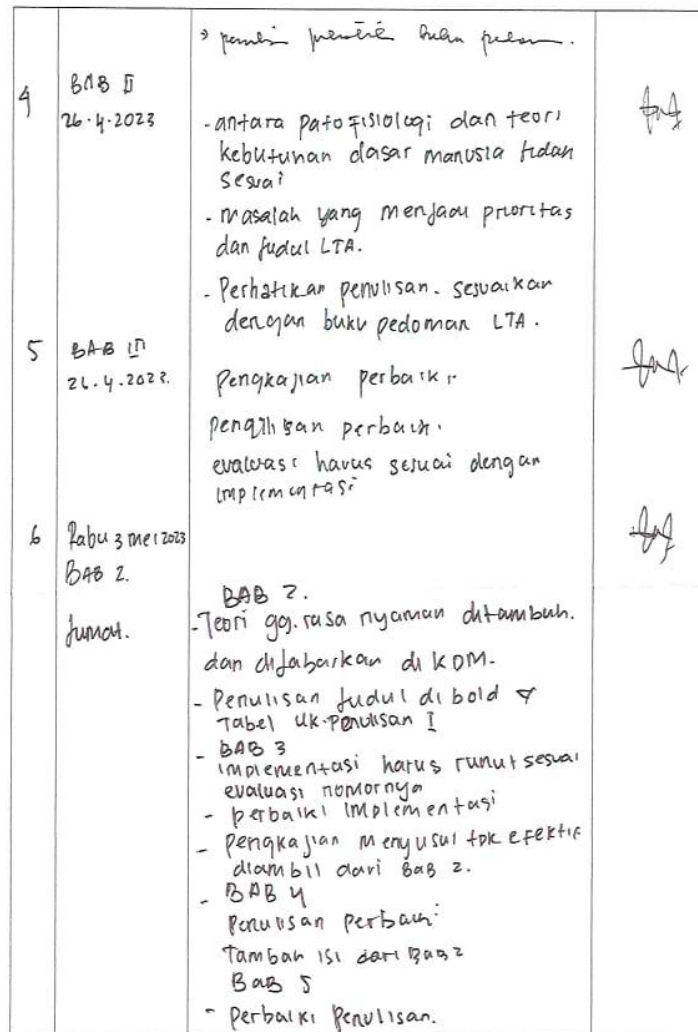 4
BAB II
26-4-2023
- antara patofisiologi dan teori
kebutuhan dasar manusia tidak
sesuai
- masalah yang menjadi prioritas
dan judul LTA.
- Perhatikan penulisan. sesuaikan
dengan buku pedoman LTA.
5
BAB III
26.4.2023.
Pengkajian perbaiki
perbaiki.
evaluasi harus sesuai dengan
implementasi
6
Rabu 3 mei 2023
BAB 2.
Jumat.
BAB 2.
- Teori gg. rasa nyaman ditambah.
dan dijabarkan di KDM.
- Penulisan judul di bold &
Tabel uk. Penulisan 1
- BAB 3
implementasi harus runut sesuai
evaluasi nomornya
- perbaiki implementasi
- pengkajian menyusui tdk efektif
diambil dari Bab 2.
- BAB 4
Penulisan perbaiki
Tambah isi dari Bab 2
Bab 5
- perbaiki penulisan.